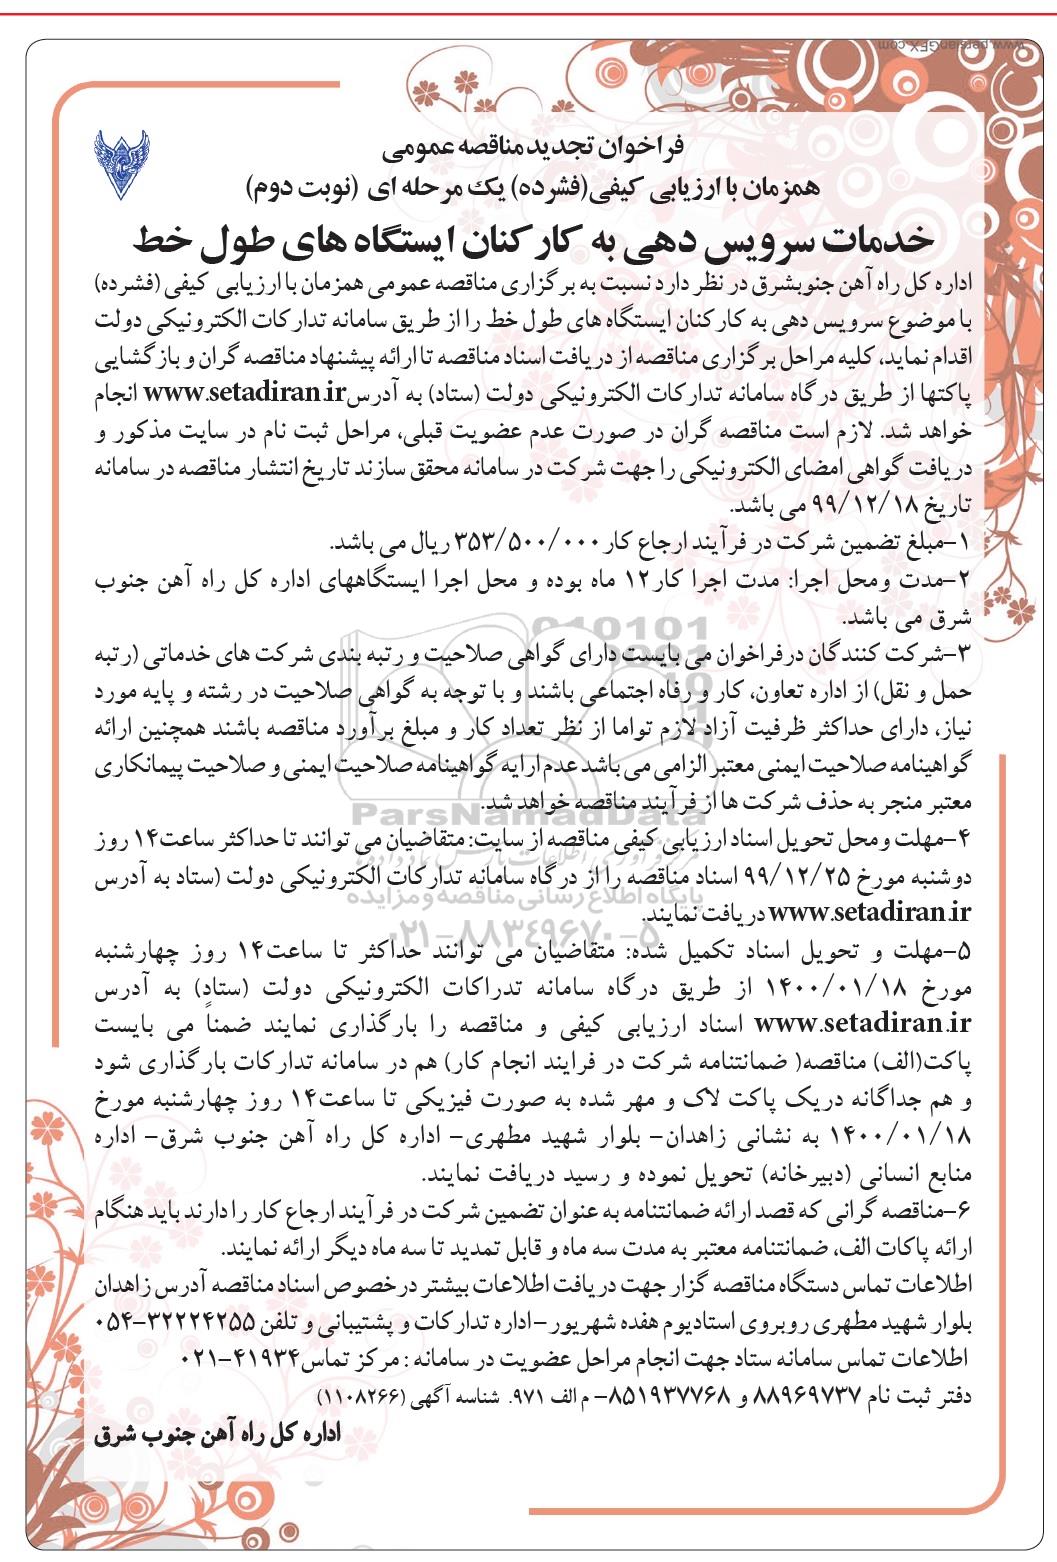 www.persianGFX.com
فراخوان تجدید مناقصه عمومی
همزمان با ارزیابی کیفی(فشرده) یک مرحله ای (نوبت دوم)
خدمات سرویس دهی به کارکنان ایستگاه های طول خط
اداره کل راه آهن جنوبشرق در نظر دارد نسبت به برگزاری مناقصه عمومی همزمان با ارزیابی کیفی (فشرده)
با موضوع سرویس دهی به کارکنان ایستگاه های طول خط را از طریق سامانه تدارکات الکترونیکی دولت
اقدام نماید، کلیه مراحل برگزاری مناقصه از دریافت اسناد مناقصه تا ارائه پیشنهاد مناقصه گران و بازگشایی
پاکتها از طریق درگاه سامانه تدارکات الکترونیکی دولت (ستاد) به آدرس www.setadiran.ir انجام
خواهد شد. لازم است مناقصه گران در صورت عدم عضویت قبلی، مراحل ثبت نام در سایت مذکور و
دریافت گواهی امضای الکترونیکی را جهت شرکت در سامانه محقق سازند تاریخ انتشار مناقصه در سامانه
تاریخ ۹۹/۱۲/۱۸ می باشد.
۱-مبلغ تضمین شرکت در فرآیند ارجاع کار ۳۵۳/۵۰۰/۰۰۰ ریال می باشد.
۲-مدت ومحل اجرا: مدت اجرا کار۱۲ ماه بوده و محل اجرا ایستگاههای اداره کل راه آهن جنوب
شرق می باشد.
۳-شرکت کنندگان درفراخوان می بایست دارای گواهی صلاحیت و رتبه بندی شرکت های خدماتی (رتبه
حمل و نقل) از اداره تعاون، کار و رفاه اجتماعی باشند و با توجه به گواهی صلاحیت در رشته و پایه مورد
نیاز، دارای حداکثر ظرفیت آزاد لازم تواما از نظر تعداد کار و مبلغ برآورد مناقصه باشند همچنین ارائه
گواهینامه صلاحیت ایمنی معتبر الزامی می باشد عدم ارایه گواهینامه صلاحیت ایمنی و صلاحیت پیمانکاری
معتبر منجر به حذف شرکت ها از فرآیند مناقصه خواهد شد.
۴-مهلت ومحل تحویل اسناد ارزیابی کیفی مناقصه از سایت: متقاضیان می توانند تا حداکثر ساعت۱۴ روز
دوشنبه مورخ ۹۹/۱۲/۲۵ اسناد مناقصه را از درگاه سامانه تدارکات الکترونیکی دولت (ستاد به آدرس
www.setadiran.ir دریافت نمایند.
۵-مهلت و تحویل اسناد تکمیل شده: متقاضیان می توانند حداکثر تا ساعت۱۴ روز چهارشنبه
مورخ ۱۴۰۰/۰۱/۱۸ از طریق درگاه سامانه تدراکات الکترونیکی دولت (ستاد) به آدرس
www.setadiran.ir اسناد ارزیابی کیفی و مناقصه را بارگذاری نمایند ضمناً می بایست
پاکت(الف) مناقصه( ضمانتنامه شرکت در فرایند انجام کار) هم در سامانه تدارکات بارگذاری شود
و هم جداگانه دریک پاکت لاک و مهر شده به صورت فیزیکی تا ساعت۱۴ روز چهارشنبه مورخ
۱۴۰۰/۰۱/۱۸ به نشانی زاهدان- بلوار شهید مطهری- اداره کل راه آهن جنوب شرق- اداره
منابع انسانی (دبیرخانه) تحویل نموده و رسید دریافت نمایند.
۶-مناقصه گرانی که قصد ارائه ضمانتنامه به عنوان تضمین شرکت در فرآیند ارجاع کار را دارند باید هنگام
ارائه پاکات الف، ضمانتنامه معتبر به مدت سه ماه و قابل تمدید تا سه ماه دیگر ارائه نمایند.
اطلاعات تماس دستگاه مناقصه گزار جهت دریافت اطلاعات بیشتر درخصوص اسناد مناقصه آدرس زاهدان
بلوار شهید مطهری روبروی استادیوم هفده شهریور-اداره تدارکات و پشتیبانی و تلفن ۳۲۲۲۴۲۵۵-۰۵۴
اطلاعات تماس سامانه ستاد جهت انجام مراحل عضویت در سامانه : مرکز تماس۴۱۹۳۴-۰۲۱
دفتر ثبت نام ۸۸۹۶۹۷۳۷ و ۸۵۱۹۳۷۷۶۸- م الف ۹۷۱. شناسه آگهی (۱۱۰۸۲۶۶)
اداره کل راه آهن جنوب شرق
ParsNamadData
پایگاه اطلاع رسانی مناقصه و مزایده
۰۲۱-۸۸۳۴۹۶۷۰-۵